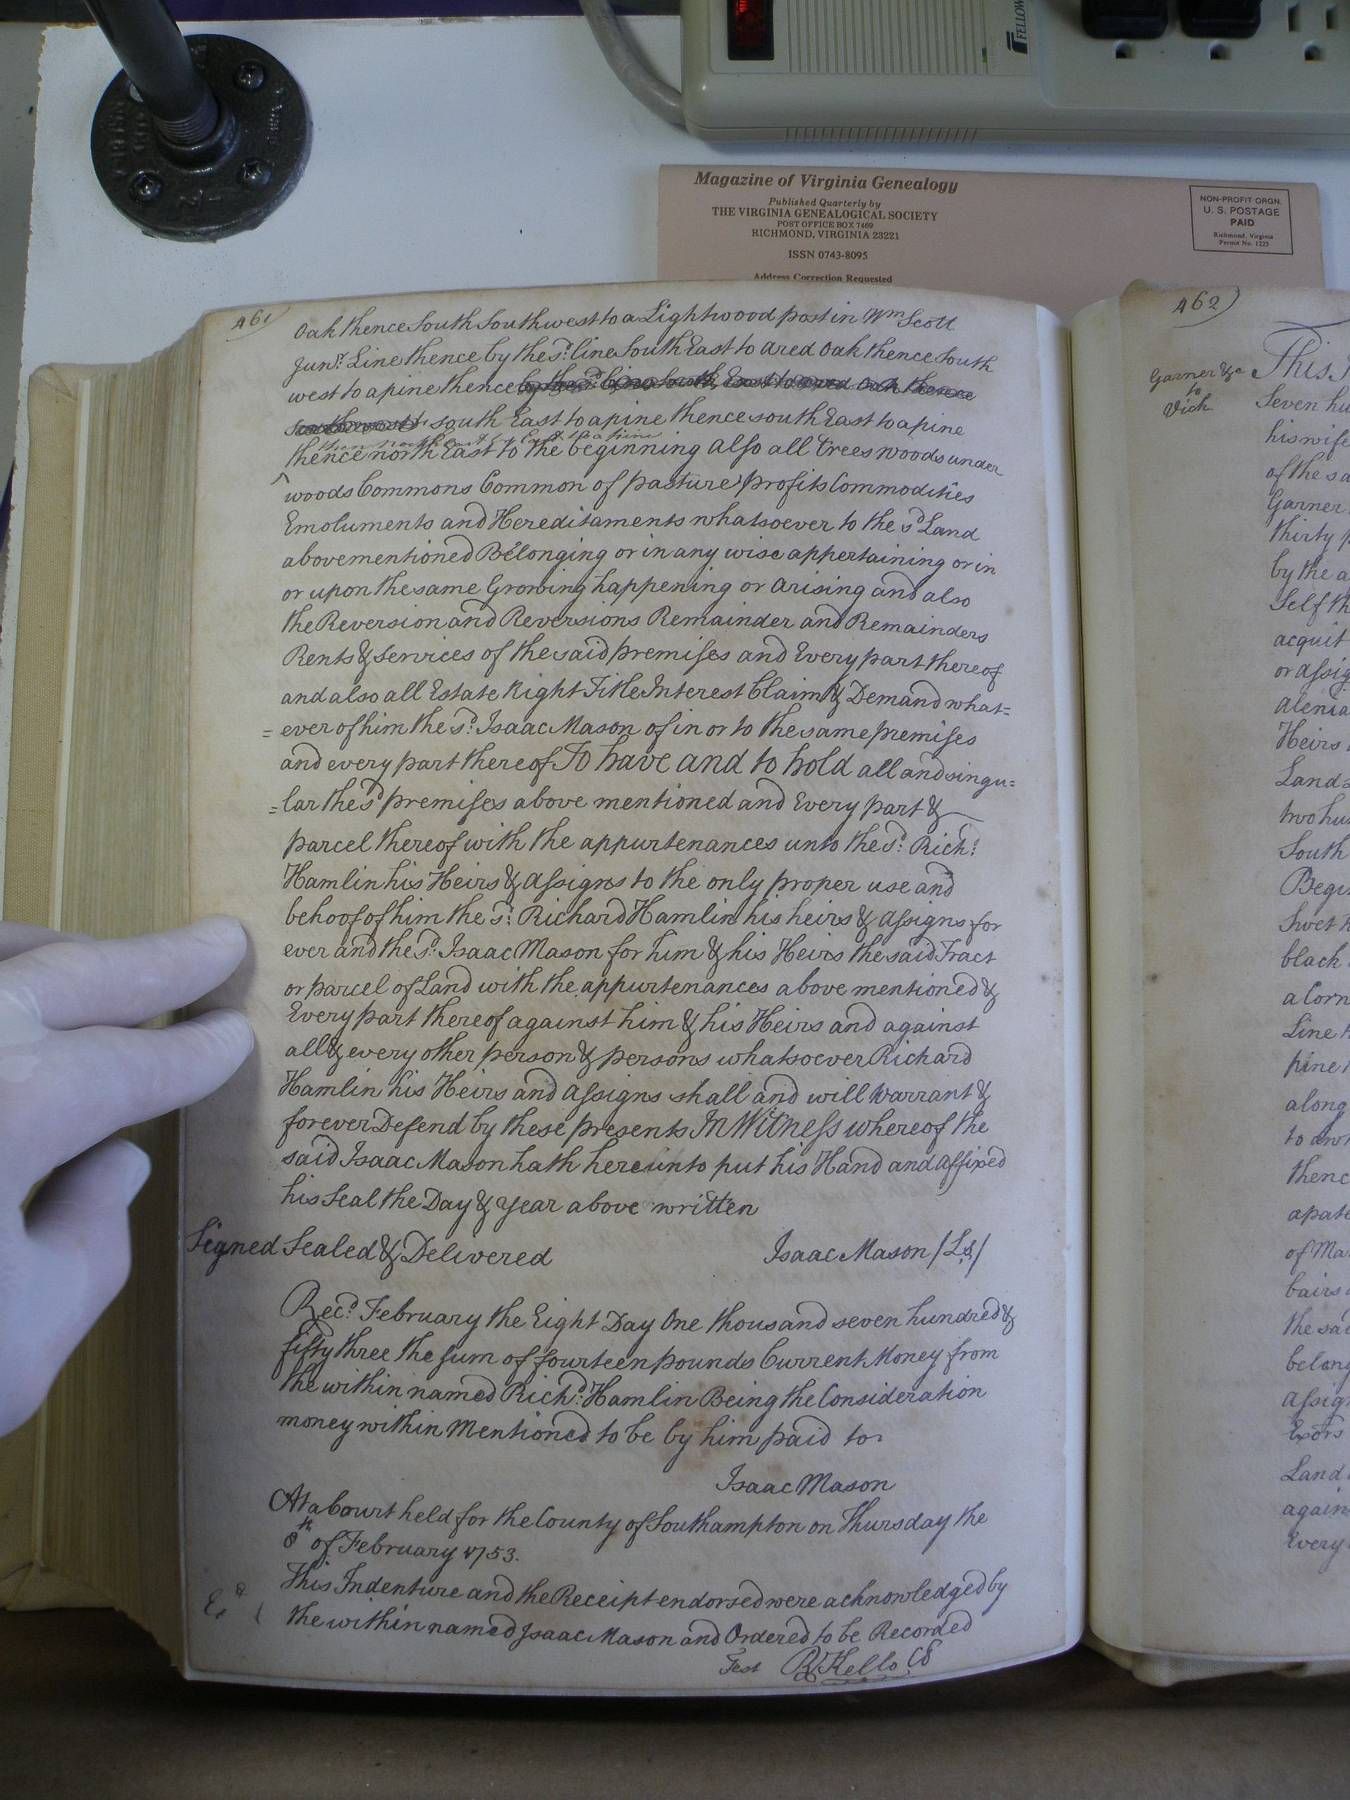 FELLOW
Magazine of Virginia Genealogy
Published Quarterly by
THE VIRGINIA GENEALOGICAL SOCIETY
POST OFFICE BOX 7469
RICHMOND, VIRGINIA 23221
ISSN 0743-8095
Address Correction Requested
NON-PROFIT ORGN.
U. S. POSTAGE
PAID
Richmond, Virginia
Permit No. 1225
461)
Oak thence South Southwest to a Lightwood post in Wm Scott
Junr. Line thence by the sd. line South East to a red Oak thence South
west to a pine thence by the sd. line South East to a red Oak thence
Southwest to south East to a pine thence south East to a pine
then north East by East to a pine
thence north East to the beginning also all trees woods under
woods Commons Common of pasture profits Commodities
Emoluments and Hereditaments whatsoever to the sd Land
abovementioned Belonging or in any wise appertaining or in
or upon the same Growing happening or arising and also
the Reversion and Reversions Remainder and Remainders
Rents & Services of the said premises and Every part thereof
and also all Estate Right Title Interest Claim & Demand what=
=ever of him the sd. Isaac Mason of in or to the same premises
and every part thereof To have and to hold all and singu=
=lar the sd premises above mentioned and Every part &
parcel thereof with the appurtenances unto the sd. Richd.
Hamlin his Heirs & assigns to the only proper use and
behoof of him the sd. Richard Hamlin his heirs & assigns for
ever and the sd. Isaac Mason for him & his Heirs the said Tract
or parcel of Land with the appurtenances above mentioned &
Every part thereof against him & his Heirs and against
all & every other person & persons whatsoever Richard
Hamlin his Heirs and assigns shall and will warrant &
forever Defend by these presents In Witness whereof the
said Isaac Mason hath hereunto put his Hand and affixed
his Seal the Day & year above written
Signed Sealed & Delivered Isaac Mason (Ls)
Recd. February the Eight Day One thousand seven hundred &
fifty three the sum of fourteen pounds Current Money from
the within named Richd. Hamlin Being the Consideration
money within Mentioned to be by him paid to
Isaac Mason
At a Court held for the County of Southampton on Thursday the
8th of February 1753.
This Indenture and the Receipt endorsed were acknowledged by
the within named Isaac Mason and Ordered to be Recorded
Test R Kello CC
462)
Garner &c
to
Vick
This
Seven hu
his wife
of the sa
Garner
thirty p
by the a
Self th
acquit
or assig
alena
Heirs
Lands
two hu
South
Begi
Swet
black
a Corn
Line
pine
along
to a
thenc
a pat
of Ma
bairs
the sa
belong
assig
Exors
Land
again
Every